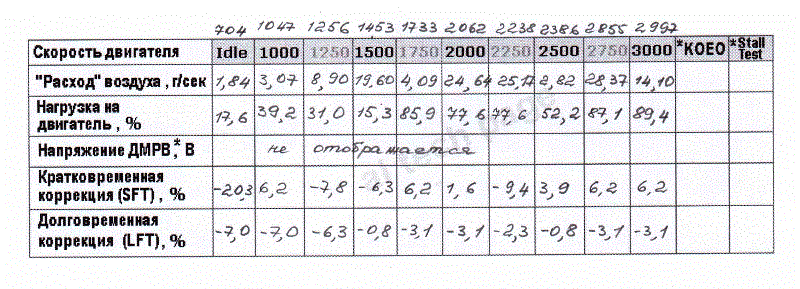 704 1047 1256 1453 1733 2062 2238 2386 2855 2997
Скорость двигателя Idle 1000 1250 1500 1750 2000 2250 2500 2750 3000 *KOEO *Stall Test
"Расход" воздуха, г/сек 1,84 3,07 8,90 19,60 4,09 24,64 25,17 2,82 28,37 14,10
Нагрузка на двигатель, % 17,6 39,2 31,0 15,3 85,9 77,6 77,6 52,2 87,1 89,4
Напряжение ДМРВ*, В не отображается
Кратковременная коррекция (SFT), % -20,3 6,2 -7,8 -6,3 6,2 1,6 -9,4 3,9 6,2 6,2
Долговременная коррекция (LFT), % -7,0 -7,0 -6,3 -0,8 -3,1 -3,1 -2,3 -0,8 -3,1 -3,1